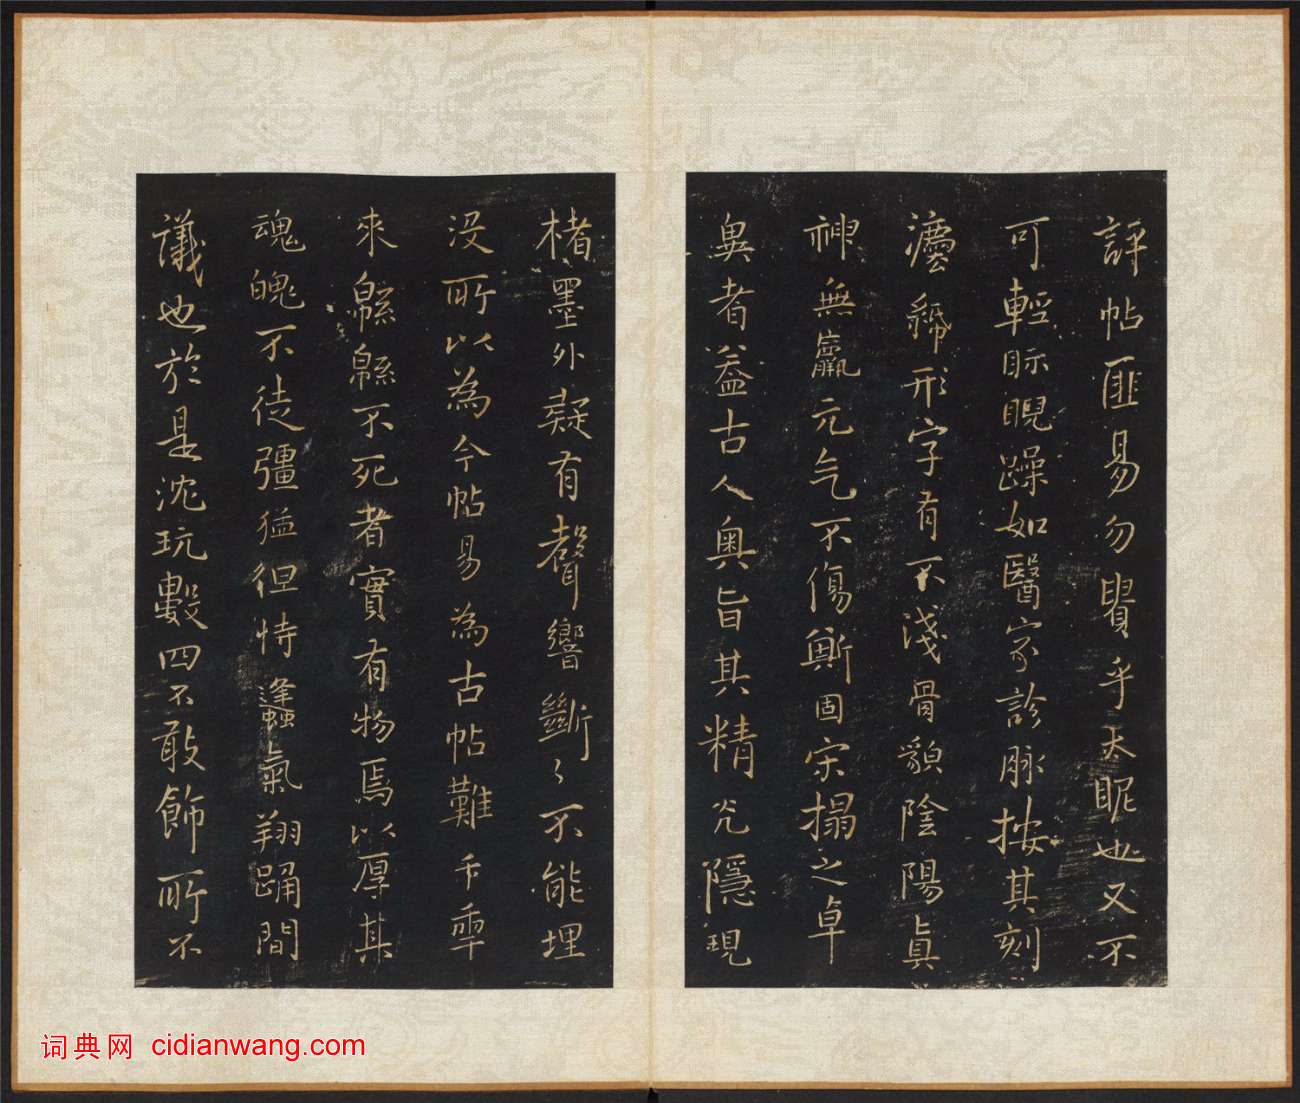 評帖匪易勿䝿乎天眤也又不
可輕眎睨躁如醫家診脉按其刻
濃稀形字有不淺骨貌陰陽眞
神無羸元气不傷斷固宋搨之卓
異者盖古人奥旨其精光隱現
楮墨外疑有聲響斷〻不能埋
没所以為今帖易為古帖難千秊
來緜緜不死者實有物焉以厚其
魂魄不徒彊猛但恃蠭氣翔踊間
議也於是沈玩數四不敢飾所不
词典网 cidianwang.com